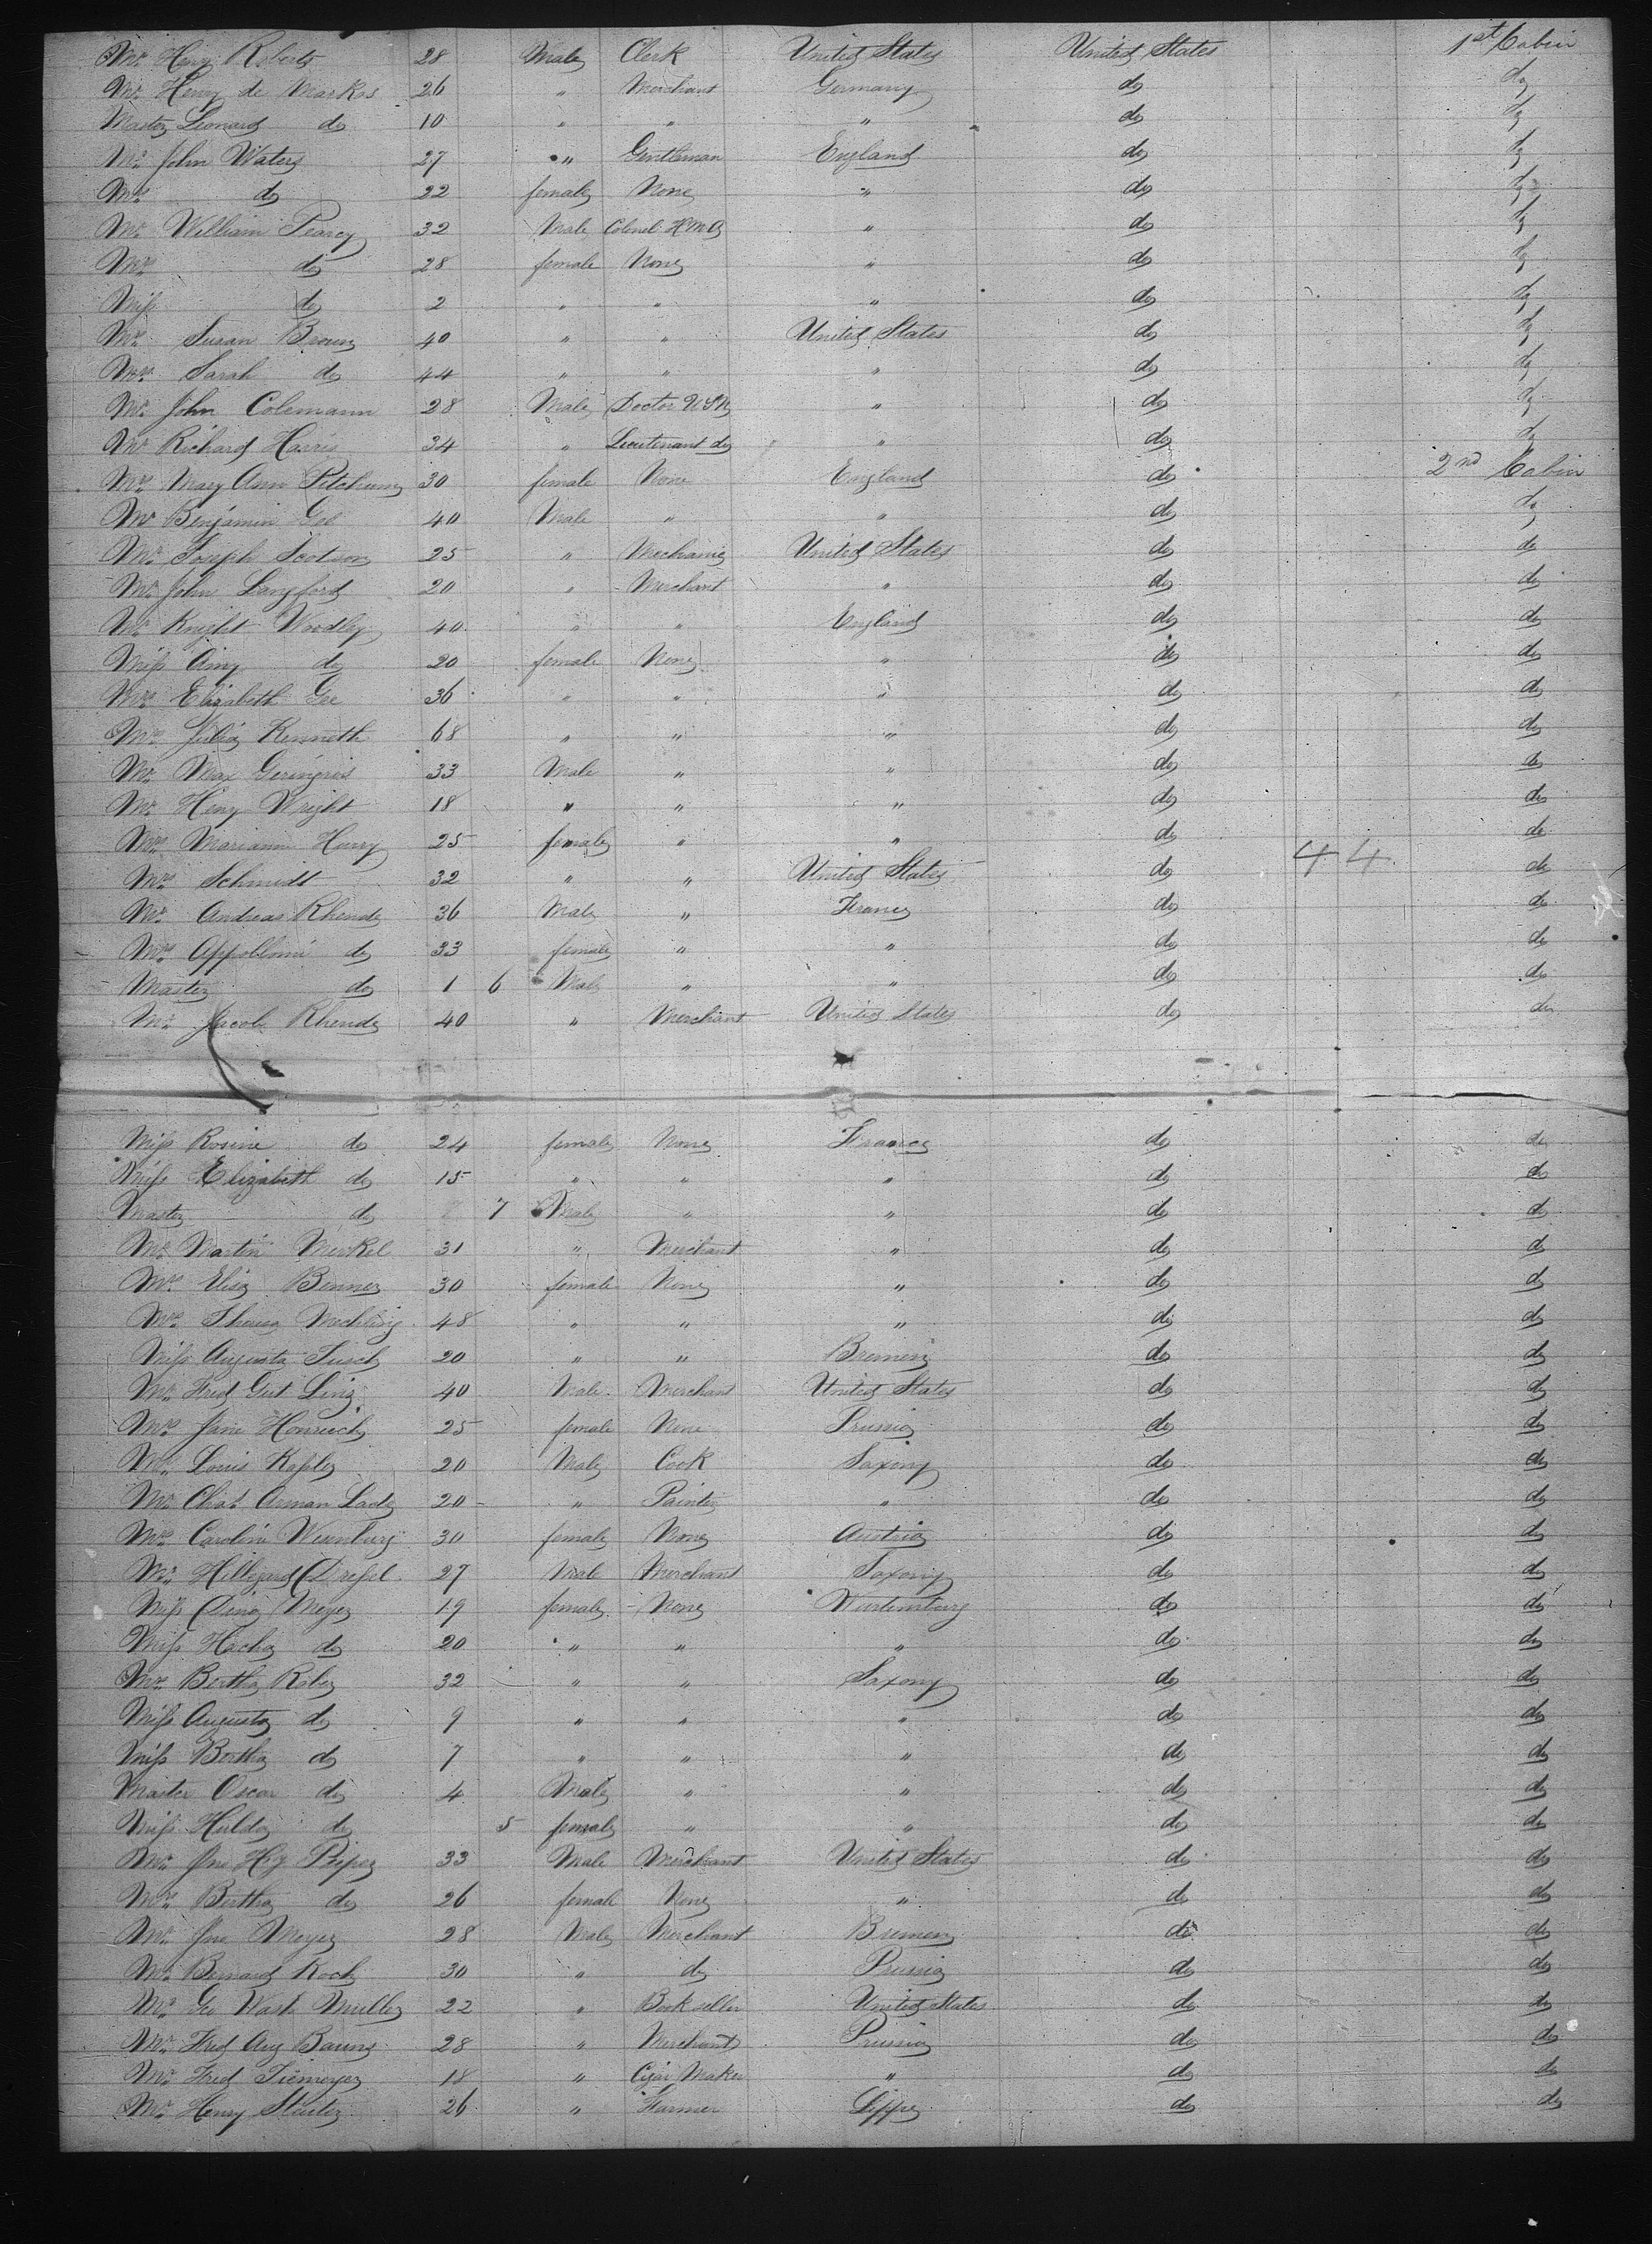 Mr. Henry Roberts 28 Male Clerk United States United States 1st Cabin
Mr. Henry de Markos 26 " Merchant Germany do do
Master Leonard do 10 " " " do do
Mr. John Waters 27 " Gentleman England do do
Mrs do 22 female None " do do
Mr. William Pearcy 32 Male Colonel " do do
Mrs do 28 female None " do do
Miss do 2 " " " do do
Mrs Susan Brown 40 " " United States do do
Mrs Sarah do 44 " " " do do
Mr. John Colemann 28 Male Doctor USN " do do
Mr Richard Harris 34 " Lieutenant do " do do
Mrs Mary Ann 30 female None England do 2nd Cabin
Mr Benjamin Gee 40 Male " " do do
Mr. Joseph Scotson 25 " Mechanic United States do do
Mr. John Langford 20 " Merchant " do do
Mr. Knight Woodley 40 " " England do do
Miss Amy do 20 female None " do do
Mrs Elizabeth Gee 36 " " " do do
Mrs Julia Kenneth 68 " " " do do
Mr. Max 33 Male " " do do
Mr. Henry Wright 18 " " " do do
Mrs Mariann Henry 25 female " " do do
Mrs Schmidt 32 " " United States do 44 do
Mr. Andreas Rhende 36 Male " France do do
Mrs Appolloni do 33 female " " do do
Master do 1 6 Male " " do do
Mr. Jacob Rhende 40 " Merchant United States do do
Miss Rosine do 24 female None France do do
Miss Elizabeth do 15 " " " do do
Master do 7 Male " " do do
Mr. Martin Merkel 31 " Merchant " do do
Mrs Elisa Benner 30 female None " do do
Mrs Theresa 48 " " " do do
Miss Augusta 20 " " Bremen do do
Mr. Fred Gut Linz 40 Male Merchant United States do do
Mrs Jane 25 female None Prussia do do
Mr. Louis 20 Male Cook Saxony do do
Mr. Chas. Arman Lade 20 " Painter " do do
Mrs Carolin 30 female None Austria do do
Mr. Dressel 27 Male Merchant Saxony do do
Miss Dina Meyer 19 female None Wurtemburg do do
Miss do 20 " " " do do
Mrs Bertha Raber 32 " " Saxony do do
Miss Augusta do 9 " " " do do
Miss Bertha do 7 " " " do do
Master Oscar do 4 Male " " do do
Miss Hulda do 5 female " " do do
Mr. Jno Hy 33 Male Merchant United States do do
Mrs Bertha do 26 female None " do do
Mr. Jno. Meyer 28 Male Merchant Bremen do do
Mr. Bernard Koch 30 " do Prussia do do
Mr. Geo Wash Muller 22 " Book seller United States do do
Mr. Fred Aug 28 " Merchant Prussia do do
Mr. Fred Tiemeyer 18 " Cigar Maker " do do
Mr. Henry 26 " Farmer Lippe do do